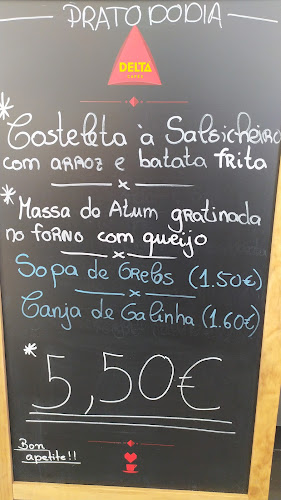 PRATO DO DIA
DELTA
CAFÉS
* Costeleta à Salsicheiro
com arroz e batata frita
* Massa do Atum gratinada
no forno com queijo
Sopa de Grelos (1.50€)
Canja de Galinha (1.60€)
* 5,50€
Bon
apetite!!